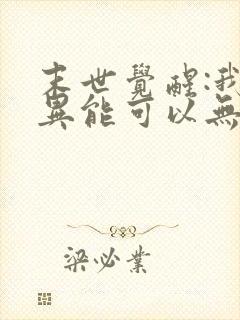 末世覺醒:我
異能可以無
梁必業